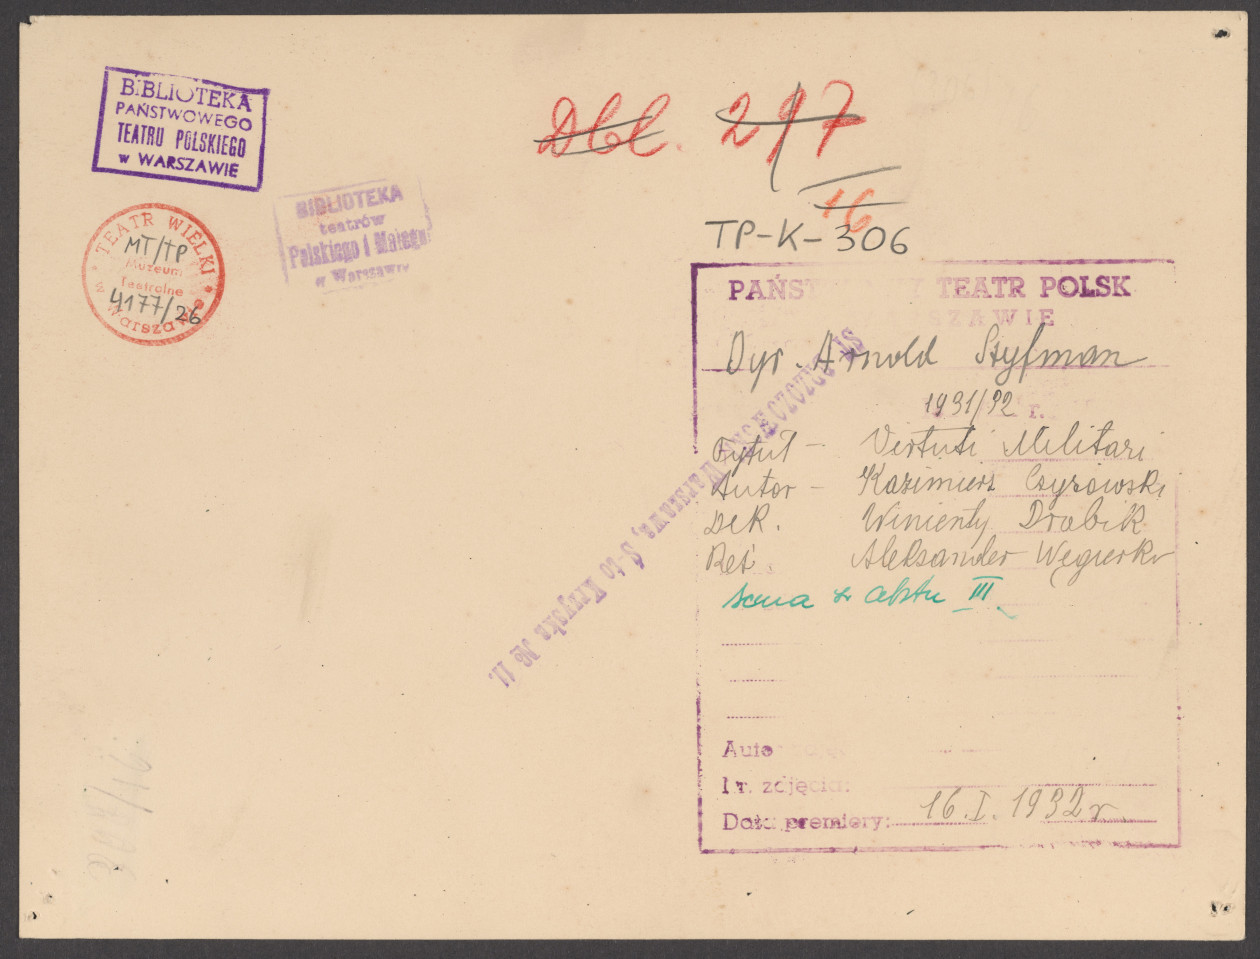 BIBLIOTEKA
PAŃSTWOWEGO
TEATRU POLSKIEGO
w WARSZAWIE
Dbl. 297
16
TEATR WIELKI
w Warszawie
MT/TP
Muzeum
Teatralne
4177/26
BIBLIOTEKA
teatrów
Polskiego i Małego
w Warszawie
TP-K-306
PAŃST TEATR POLSK
SZAWIE
Dyr. Arnold Szyfman
1931/32 r.
Tytuł - Virtuti Militari
Autor - Kazimierz Czyżowski
Dek. Winienty Drabik
Reż Aleksander Węgierko
scena z aktu III
ST. BRZOZOWSKI Warszawa, S-to Krzyska № 11.
Auto
Nr. zdjęcia:
Data premiery: 16. I. 1932 r
308/46